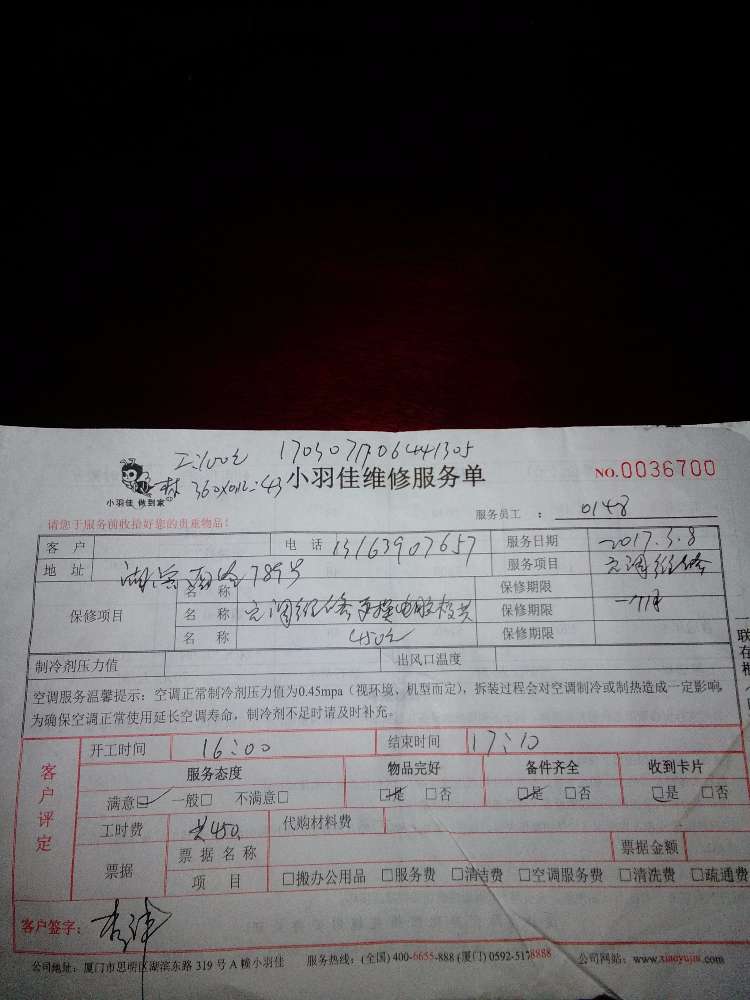 工:100元 170307170644305
小羽佳 做到家
材 360x0.12=43
小羽佳维修服务单
NO.0036700
请您于服务前收拾好您的贵重物品!
服务员工 : 0148
客 户 电 话 13163907657 服务日期 2017.3.8
地 址 789号 服务项目 空调维修
保修项目 名 称 保修期限
名 称 空调维修更换电脑板共 保修期限 一个月
名 称 450元 保修期限
制冷剂压力值 出风口温度
空调服务温馨提示:空调正常制冷剂压力值为0.45mpa(视环境、机型而定),拆装过程会对空调制冷或制热造成一定影响,
为确保空调正常使用延长空调寿命,制冷剂不足时请及时补充。
客户评定
开工时间 16:00 结束时间 17:10
服务态度 物品完好 备件齐全 收到卡片
满意☑ 一般□ 不满意□ □是 □否 □是 □否 □是 □否
工时费 共450. 代购材料费
票据 票据名称 票据金额
项 目 □搬办公用品 □服务费 □清洁费 □空调服务费 □清洗费 □疏通费
客户签字:
公司地址:厦门市思明区湖滨东路 319 号 A 幢小羽佳 服务热线:(全国) 400-6655-888 (厦门) 0592-5178888 公司网站:www.xiaoyujia.com
联
存
根